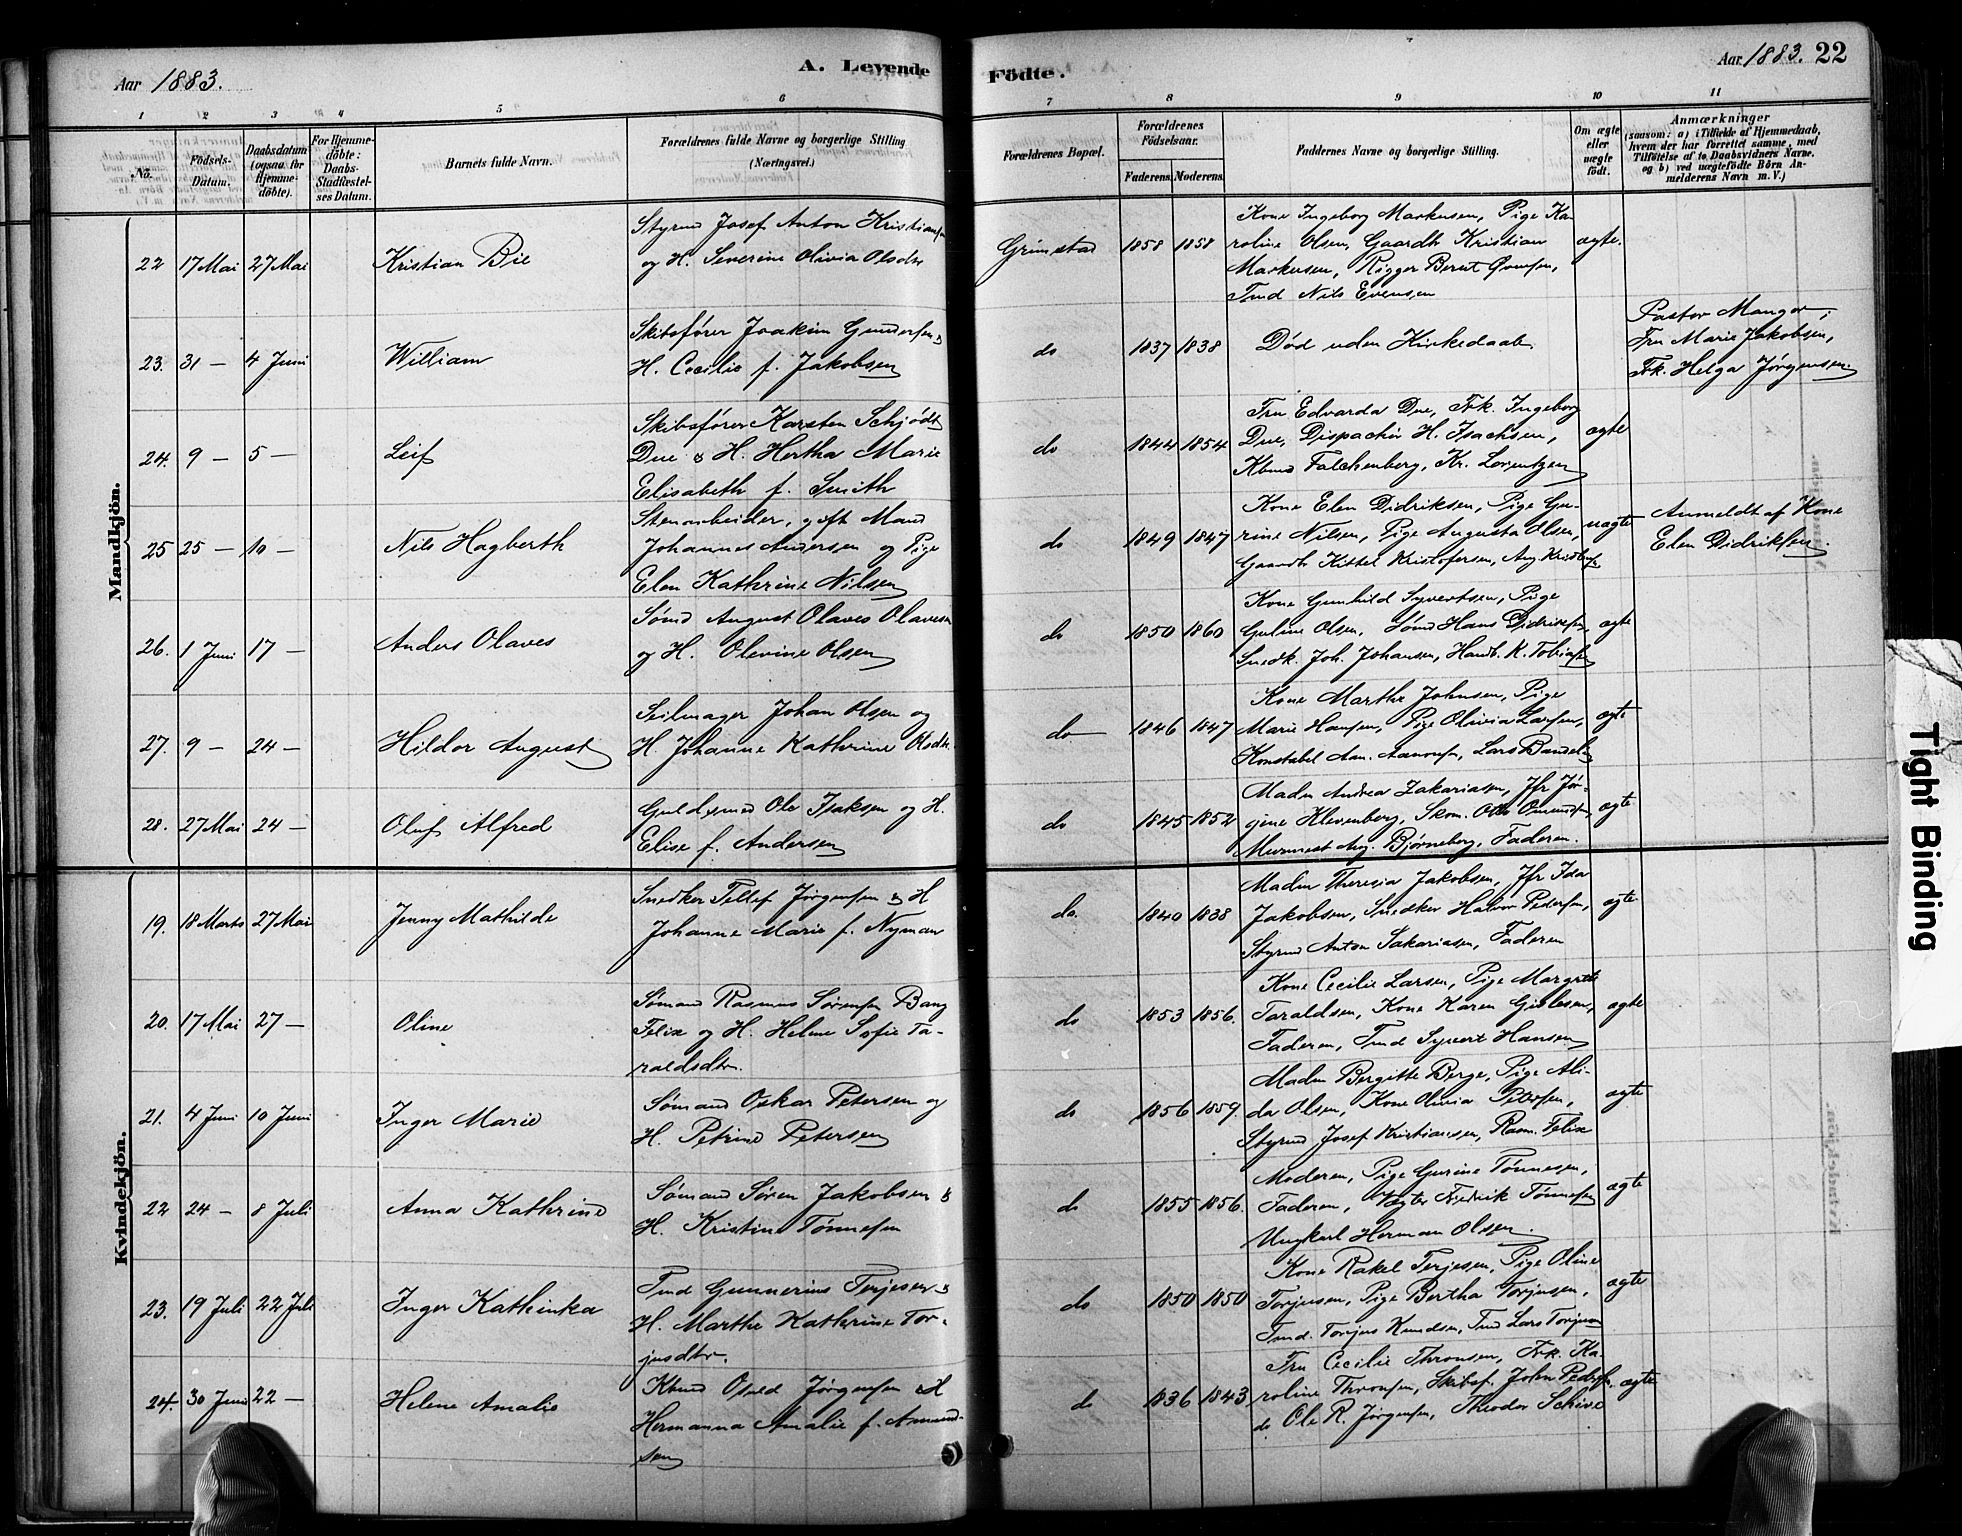 Aar 1883.
A. Levende
Födte.
Aar 1883. 22
1 2 3 4 5 6 7 8 9 10 11
No.
Födsels-Datum.
Daabsdatum (ogsaa for Hjemmedöbte).
For Hjemmedöbte: Daabs-Stadfæstelses Datum.
Barnets fulde Navn.
Forældrenes fulde Navne og borgerlige Stilling (Næringsvei.)
Forældrenes Bopæl.
Forældrenes Födselsaar.
Faderens. Moderens.
Faddernes Navne og borgerlige Stilling.
Om ægte eller uægte födt.
Anmærkninger
(saasom: a) i Tilfælde af Hjemmedaab, hvem der har forrettet samme, med Tilföielse af to Daabsvidners Navne, og b) ved uægtefödte Börn Anmelderens Navn m. V.)
Mandkjön.
22 17 Mai 27 Mai Kristian Bie
Styrmd Josef Anton Kristiansen
og H. Severine Olivia Olsdtr
Grimstad 1858 1858
Kone Ingeborg Markusen, Pige Ka-
roline Olsen, Gaardb. Kristian
Markusen, Rigger Bernt
Tmd Nils Evensen
ægte.
23. 31 – 4 Juni William
Skibsfører Joakim Gundersen &
H. Cecilie f. Jakobsen
do 1837 1838
Død uden Kirkedaab
Pastor Manger,
Fru Marie Jakobsen,
Frk. Helga Jørgensen
24. 9 – 5 – Leif
Skibsfører Karsten Schjödt
Due & H. Hertha Marie
Elisabeth f. Smith
do 1844 1854
Fru Edvarda Due, Frk. Ingeborg
Due, Dispachør H. Isachsen,
Kbmd Falchenberg, Kr. Lorentzen
ægte
25 25 – 10 – Nils Hagberth
Stenarbeider, gift Mand
Johannes Andersen og Pige
Elen Kathrine Nilsen
do 1849 1847
Kone Elen Didriksen, Pige Gu-
rine Nilsen, Pige Augusta Olsen,
Gaardb. Kittel Kristofersen, Aug. Kristofs.
uægte
Anmeldt af Kone
Elen Didriksen.
26. 1 Juni 17 – Anders Olaves
Sømd August Olaves Olavesen
og H. Olevine Olsen
do 1850 1860
Kone Gunhild Syvertsen, Pige
Guline Olsen, Sømd Hans Didriksen,
Snedk. Joh. Johansen, Handb. K. Tobiasen
ægte
27. 9 – 24 – Hildor August
Seilmager Johan Olsen og
H. Johanne Kathrine Olsdtr.
do 1846 1847
Kone Marthe Johnsen, Pige
Marie Hansen, Pige Olivia Larsen,
Konstabel Aan. Aanonsen, Lars
ægte
28. 27 Mai 24 – Oluf Alfred
Guldsmed Ole Isaksen og H.
Elise f. Andersen
do 1845 1852
Madm Andrea Zakariasen, Jfr Jør-
gine Klevenberg, Skom. Otto Omundsen,
Murmest. Aug. Bjørneborg, Faderen.
ægte
Kvindekjön.
19. 18 Marts 27 Mai Jenny Mathilde
Snedker Tellef Jørgensen & H
Johanne Marie f. Nyman
do. 1840 1838
Madm Theresia Jakobsen, Jfr Ida
Jakobsen, Snedker Halvor Pedersen,
Styrmd Anton Sakariasen, Faderen
ægte
20. 17 Mai 27 – Oline
Sømand Rasmus Sørensen Bang
Felix og H. Helene Sofie Ta-
raldsdtr.
do 1853 1856.
Kone Cecilie Larsen, Pige Margrete
Taraldsen, Kone Karen
Faderen, Tmd Syvert Hansen
ægte
21. 4 Juni 10 Juni Inger Marie
Sømand Oskar Petersen og
H. Petrine Petersen
do 1856 1859.
Madm Bergitte Berge, Pige Ali-
da Olsen, Kone Olivia Petersen,
Styrmd Josef Kristiansen, Rasm. Felix
ægte
22 24 – 8 Juli Anna Kathrine
Sømand Søren Jakobsen &
H. Kristine Tønnesen
do 1855 1856.
Moderen, Pige Gurine Tønnesen,
Faderen, Vægter Fredrik Tønnesen
Ungkarl Herman Olsen.
ægte
23. 19 Juli 22 Juli Inger Kathinka
Tmd Gunnerius Terjesen &
H. Marthe Kathrine Tor-
jusdtr.
do 1850 1850
Kone Rakel Terjesen, Pige Oline
Torjusen, Pige Bertha Torjusen,
Tmd. Torjus Knudsen, Tmd Lars Torjusen
ægte
24. 30 Juni 22 – Helene Amalie
Kbmd Osuld Jørgensen & H
Hermanna Amalie f. Amund-
sen
do 1836 1843
Fru Cecilie Thronsen, Frk. Ka-
roline Thronsen, Skibsf. John Pedersen,
do Ole R. Jørgensen, Theodor Schive
ægte
Tight Binding